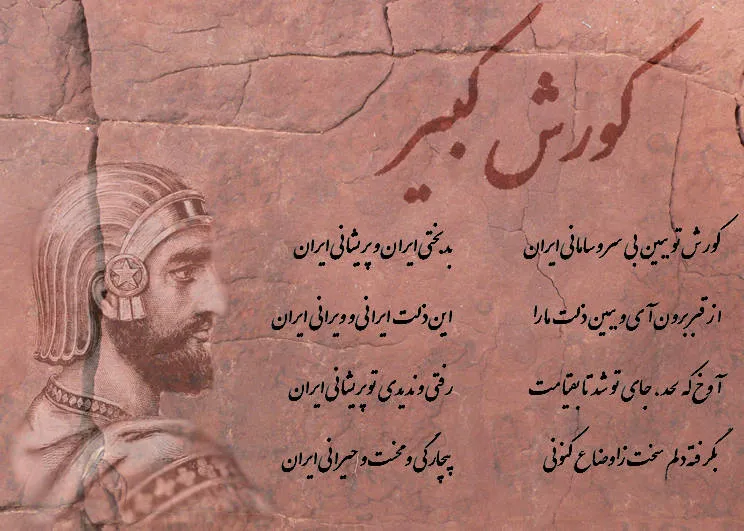 کورش کبیر
کورش تو ببین بی سر و سامانی ایران بدبختی ایران و پریشانی ایران
از قبر برون آی و ببین ذلت ما را این ذلت ایرانی و ویرانی ایران
آوخ که لحد، جای تو شد تا بقیامت رفتی و ندیدی تو پریشانی ایران
بگرفته دلم سخت ز اوضاع کنونی بیچارگی و محنت و حیرانی ایران